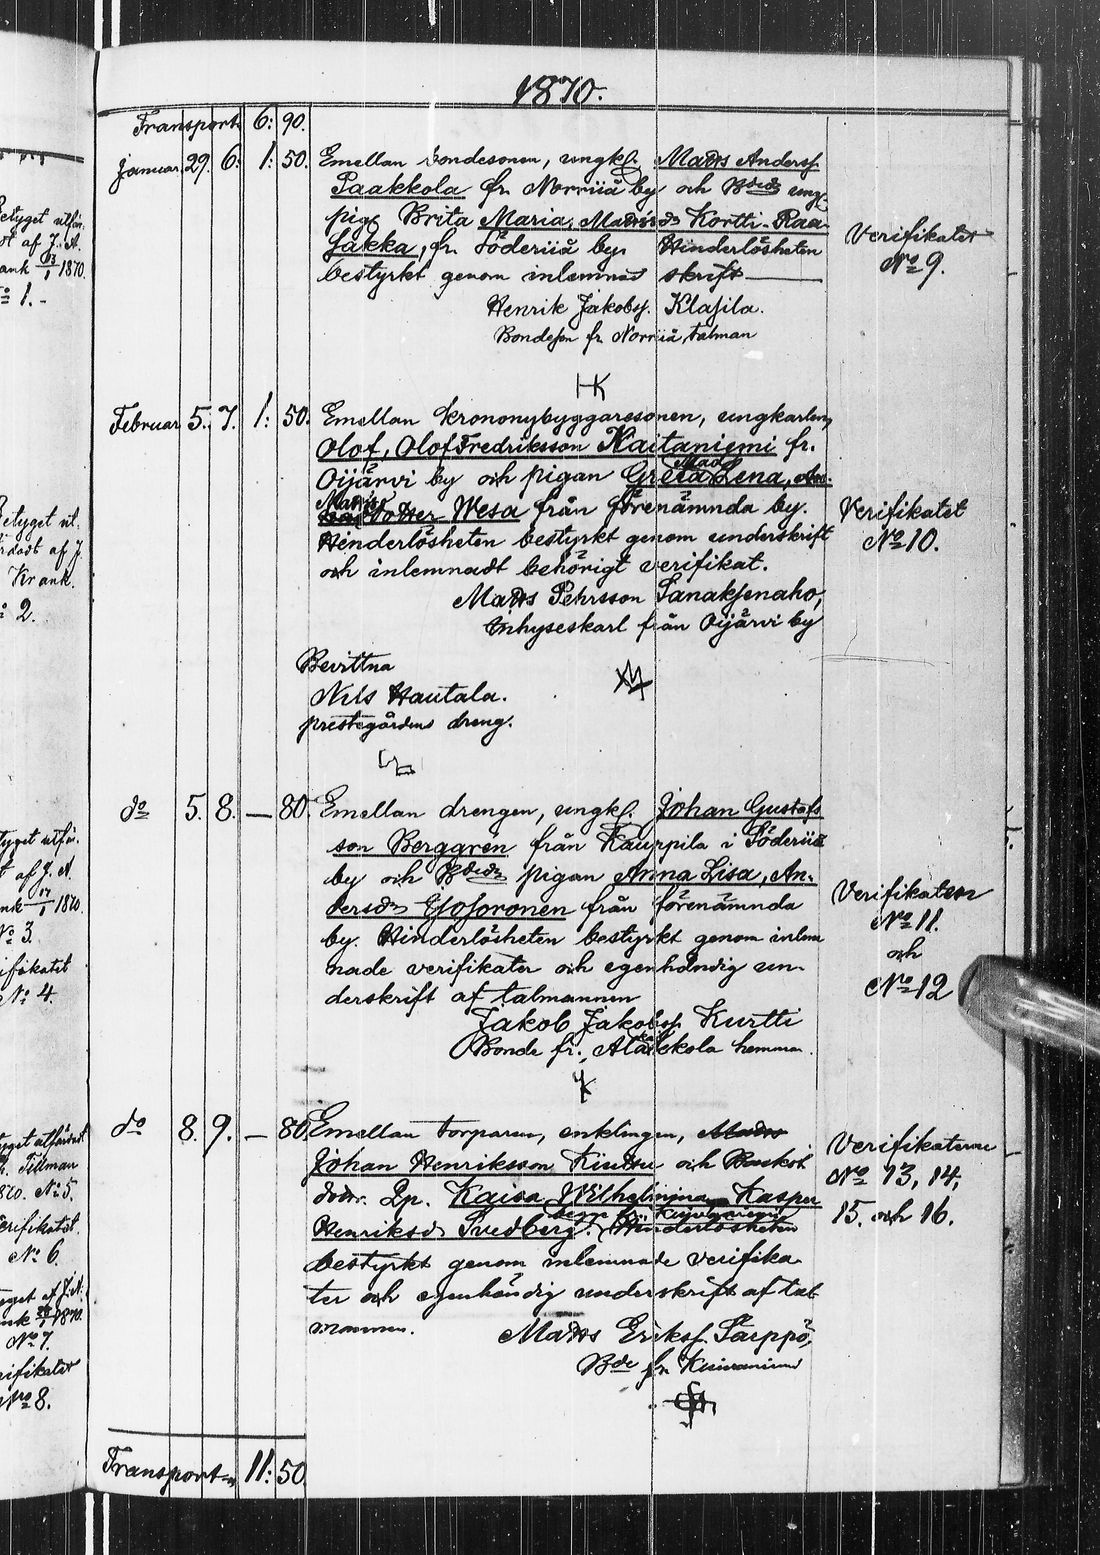 1870.
Transport 6: 90.
Januar. 29. 6. 1: 50. Emellan bondesonen, ungkl. Matts Anderss.
Paakkola fr. Norriiå by och Bdedr ung.
pig. Brita Maria, Mattsdr Kortti-Raa-
sakka, fr. Söderiiå by. Hinderlösheten
bestyrkt genom inlemnad skrift
Henrik Jakobss. Klasila.
Bondeson fr Norriiå, talman
HK
Verifikatet
No 9.
Februar 5. 7. 1: 50. Emellan krononybyggaresonen, ungkarlen,
Olof, Olof Fredriksson Kaitaniemi fr.
Oijärvi by och pigan Greta Lena,
Matts
dotter Wesa från förenämnda by.
Hinderlösheten bestyrkt genom underskrift
och inlemnadt behörigt verifikat.
Matts Pehrsson Sanaksenaho,
Inhyseskarl från Oijärvi by
Verifikatet
No 10.
Bevittna
Nils Hautala.
prestegårdens dreng.
do 5. 8. — 80. Emellan drengen, ungkl. Johan Gustafs
son Berggrén från Kauppila i Söderiiå
by och Bdedr pigan Anna Lisa, An-
dersdr från förenämnda
by. Hinderlösheten bestyrkt genom inlem
nade verifikater och egenhändig un-
derskrift af talmannen
Jakob Jakobss. Kurtti
Bonde fr. hemman.
Verifikaten
No 11.
och
No 12
do 8. 9. — 80. Emellan torparen, enklingen, Matts
Johan Henriksson Kiuttu och
dottr. Lp. Kajsa Wilhelmina Kasper
Henriksdr Svedberg. Hinderlösheten
bestyrkt genom inlemnade verifika
ter och egenhändig underskrift af tal
mannen.
Matts Erikss. Sarppo,
Bde fr. Kuivaniemi
Verifikaterne
No 13, 14,
15. och 16.
Transport 11: 50.
betyget utfär-
dt af J. A.
ank 13/1 1870.
No 1.
betyget ut-
färdadt af J.
Krank.
No 2.
betyget utfär.
t af J. A.
ank 17/1 1870.
No 3.
verifikatet
No 4.
betyget utfärdadt
Tillman
1870. No 5.
Verifikatet
No 6.
betyget af J. A.
ank 1870.
No 7.
verifikatet
No 8.